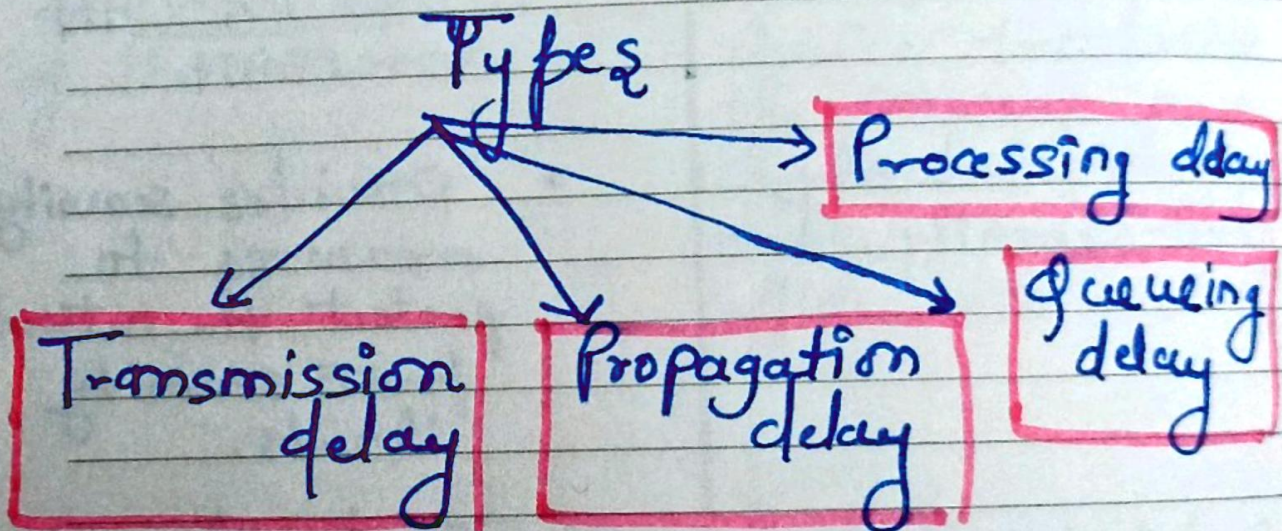 Types
Processing delay
Queueing
delay
Transmission
delay
Propagation
delay